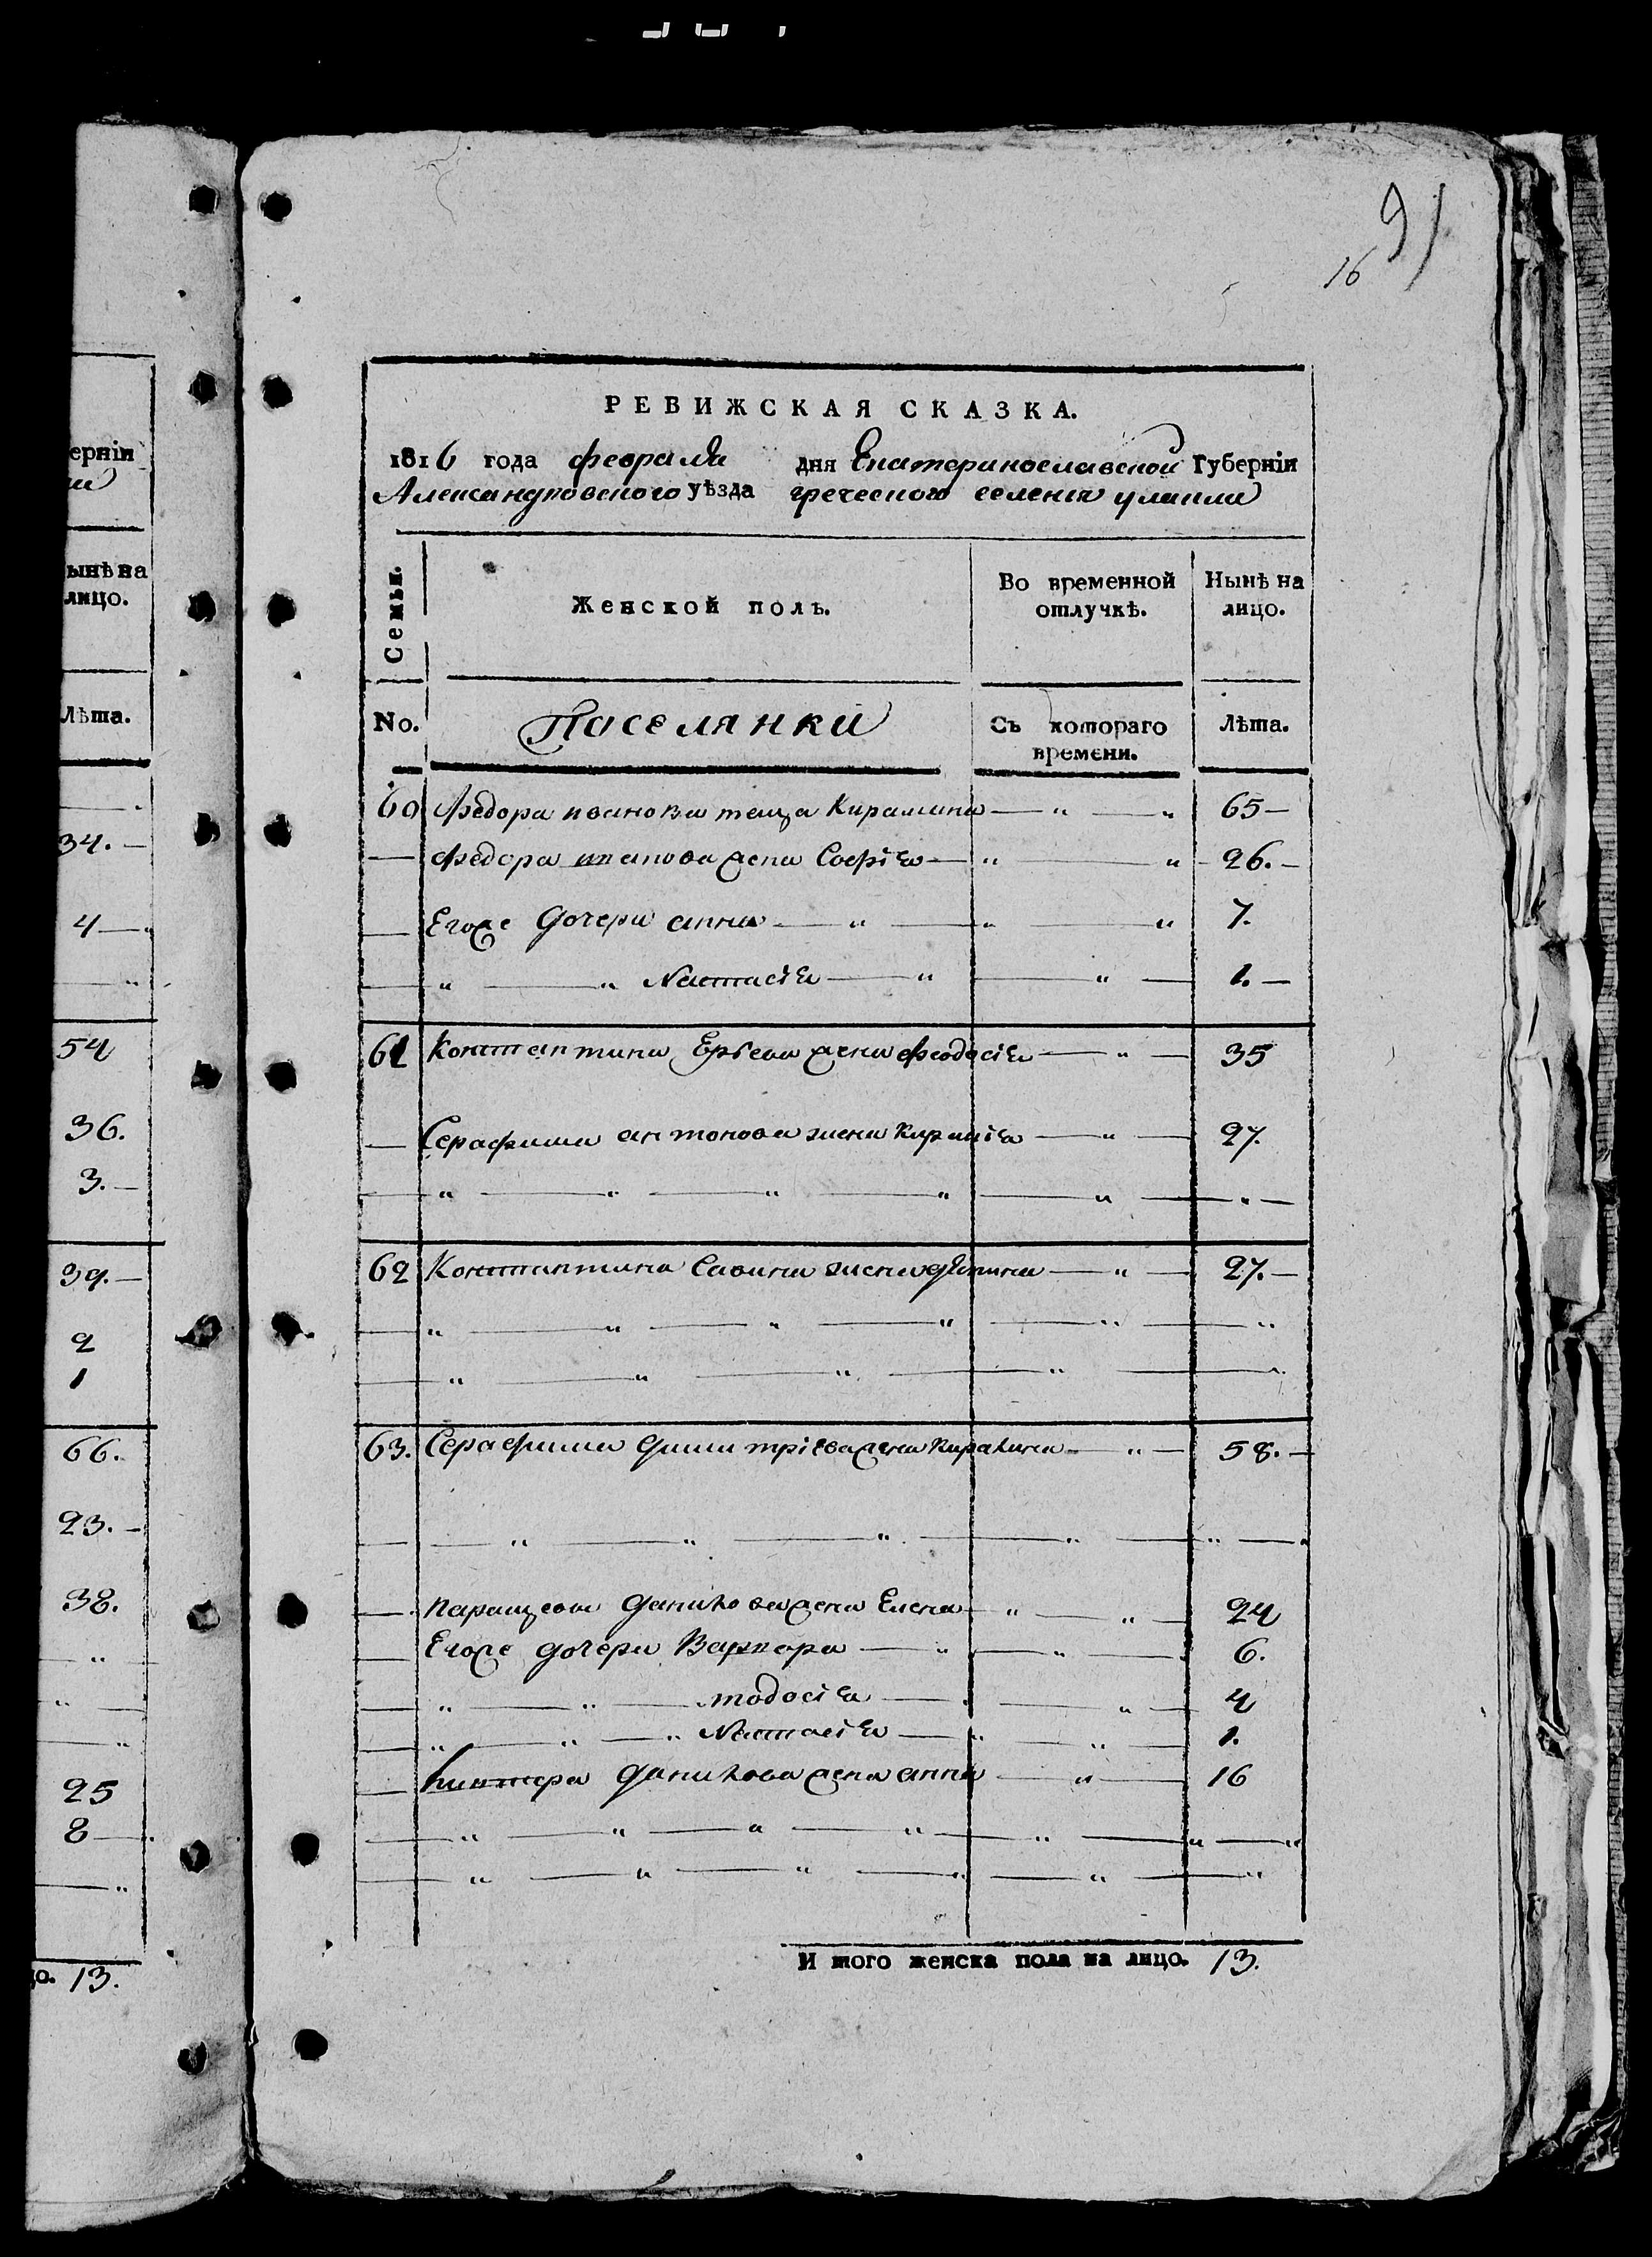 ерніи
ынѣ на
лицо.
Лѣта.
34. —
4 —
54
36.
3. —
39. —
2
1
66.
23. —
38.
25
8 —
о. 13.
91
16
РЕВИЖСКАЯ СКАЗКА.
1816 года февраля дня Екатеринославской Губерніи
Александровского уѣзда греческого селенія улаклы
Семьи. Женской полъ. Во временной отлучкѣ. Нынѣ на лицо.
No. Поселянки Съ котораго времени. Лѣта.
60 Федора иванова теща Кирамина — " — " 65 —
— Федора иванова жена Софія — " — " 26. —
— Егоже дочери анна — " — " — " 7.
— " — " Настасія — " — " — 1. —
61 Константина Юрьева жена феодосія — " — 35
— Серафима антонова жена Кирикія — " — 27.
— " — " — " — " — " — " —
62 Константина Савина жена — " — 27. —
— " — " — " — " — " — "
— " — " — " — " — "
63. Серафима димитріева жена Киракина — " — 58. —
— — " — " — " — " — " — "
— Паращева данилова жена Елена — " — " — 24
— Егоже дочери Варвара — " — " — 6.
— " — " — тодосія — " — 4
— " — " — " Настасія — " — " — 1.
— данилова жена анна — " — 16
— " — " — " — " — " — " — "
— " — " — " — " — " — "
И того женска пола на лицо. 13.